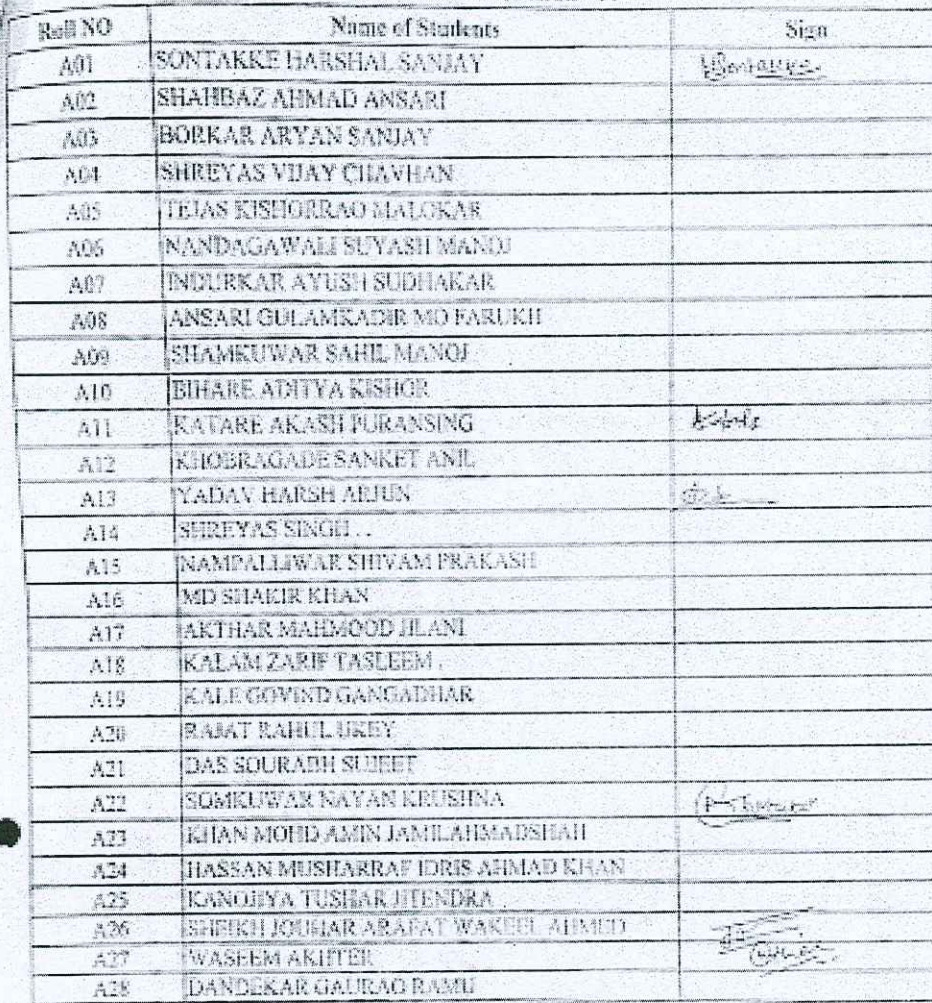 Roll NO Name of Students Sign
A01 SONTAKKE HARSHAL SANJAY
A02 SHAHBAZ AHMAD ANSARI
A03 BORKAR ARYAN SANJAY
A04 SHREYAS VIJAY CHAVHAN
A05 TEJAS KISHORRAO MALOKAR
A06 NANDAGAWALI SUYASH MANOJ
A07 INDURKAR AYUSH SUDHAKAR
A08 ANSARI GULAMKADIR MO FARUKH
A09 SHAMKUWAR SAHIL MANOJ
A10 BIHARE ADITYA KISHOR
A11 KATARE AKASH PURANSING
A12 KHOBRAGADE SANKET ANIL
A13 YADAV HARSH ARJUN
A14 SHREYAS SINGH . .
A15 NAMPALLIWAR SHIVAM PRAKASH
A16 MD SHAKIR KHAN
A17 AKTHAR MAHMOOD JILANI
A18 KALAM ZARIF TASLEEM .
A19 KALE GOVIND GANGADHAR
A20 RAJAT RAHUL UKEY
A21 DAS SOURABH SUJEET
A22 SOMKUWAR NAYAN KRUSHNA
A23 KHAN MOHD AMIN JAMILAHMADSHAH
A24 HASSAN MUSHARRAF IDRIS AHMAD KHAN
A25 KANOJIYA TUSHAR JITENDRA
A26 SHEIKH JOUHAR ARAFAT WAKEEL AHMED
A27 WASEEM AKHTER
A28 DANDEKAR GAURAO RAMU